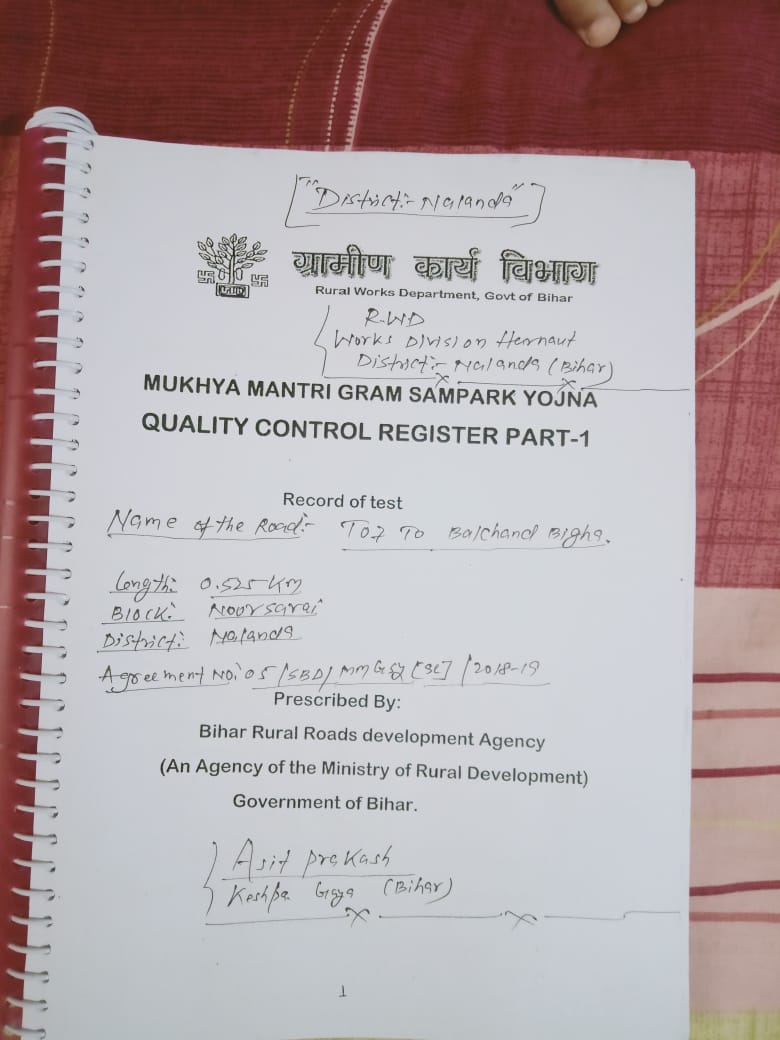 ["District:- Nalanda"]
ग्रामीण कार्य विभाग
Rural Works Department, Govt of Bihar
R.WD
Works Division Harnaut
District:- Nalanda (Bihar)
MUKHYA MANTRI GRAM SAMPARK YOJNA
QUALITY CONTROL REGISTER PART-1
Record of test
Name of the Road:- To7 To Balchand Bigha.
Length: 0.525 KM
Block: Noorsarai
District: Nalanda
Agreement No: 05/SBD/MMGSY [SC] /2018-19
Prescribed By:
Bihar Rural Roads development Agency
(An Agency of the Ministry of Rural Development)
Government of Bihar.
Asit Prakash
Keshpa Gaya (Bihar)
1